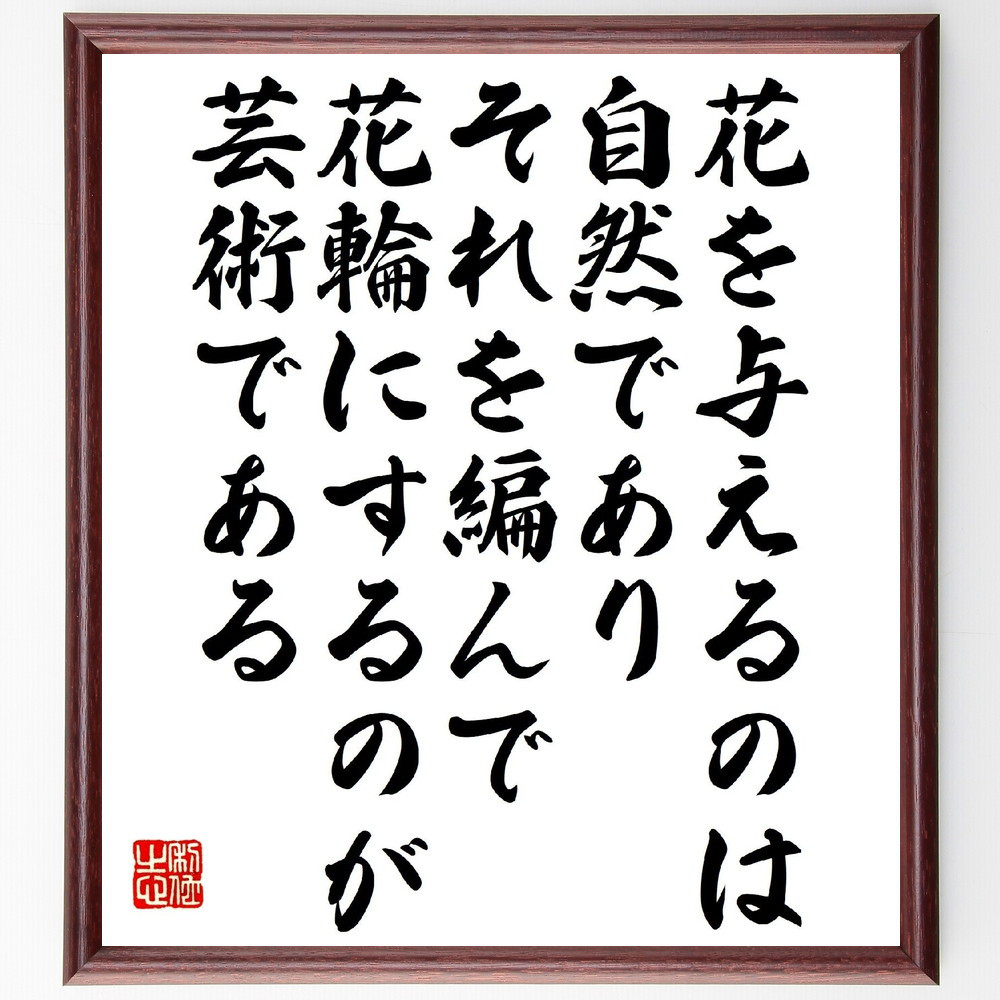 花を与えるのは
自然であり
それを編んで
花輪にするのが
芸術である